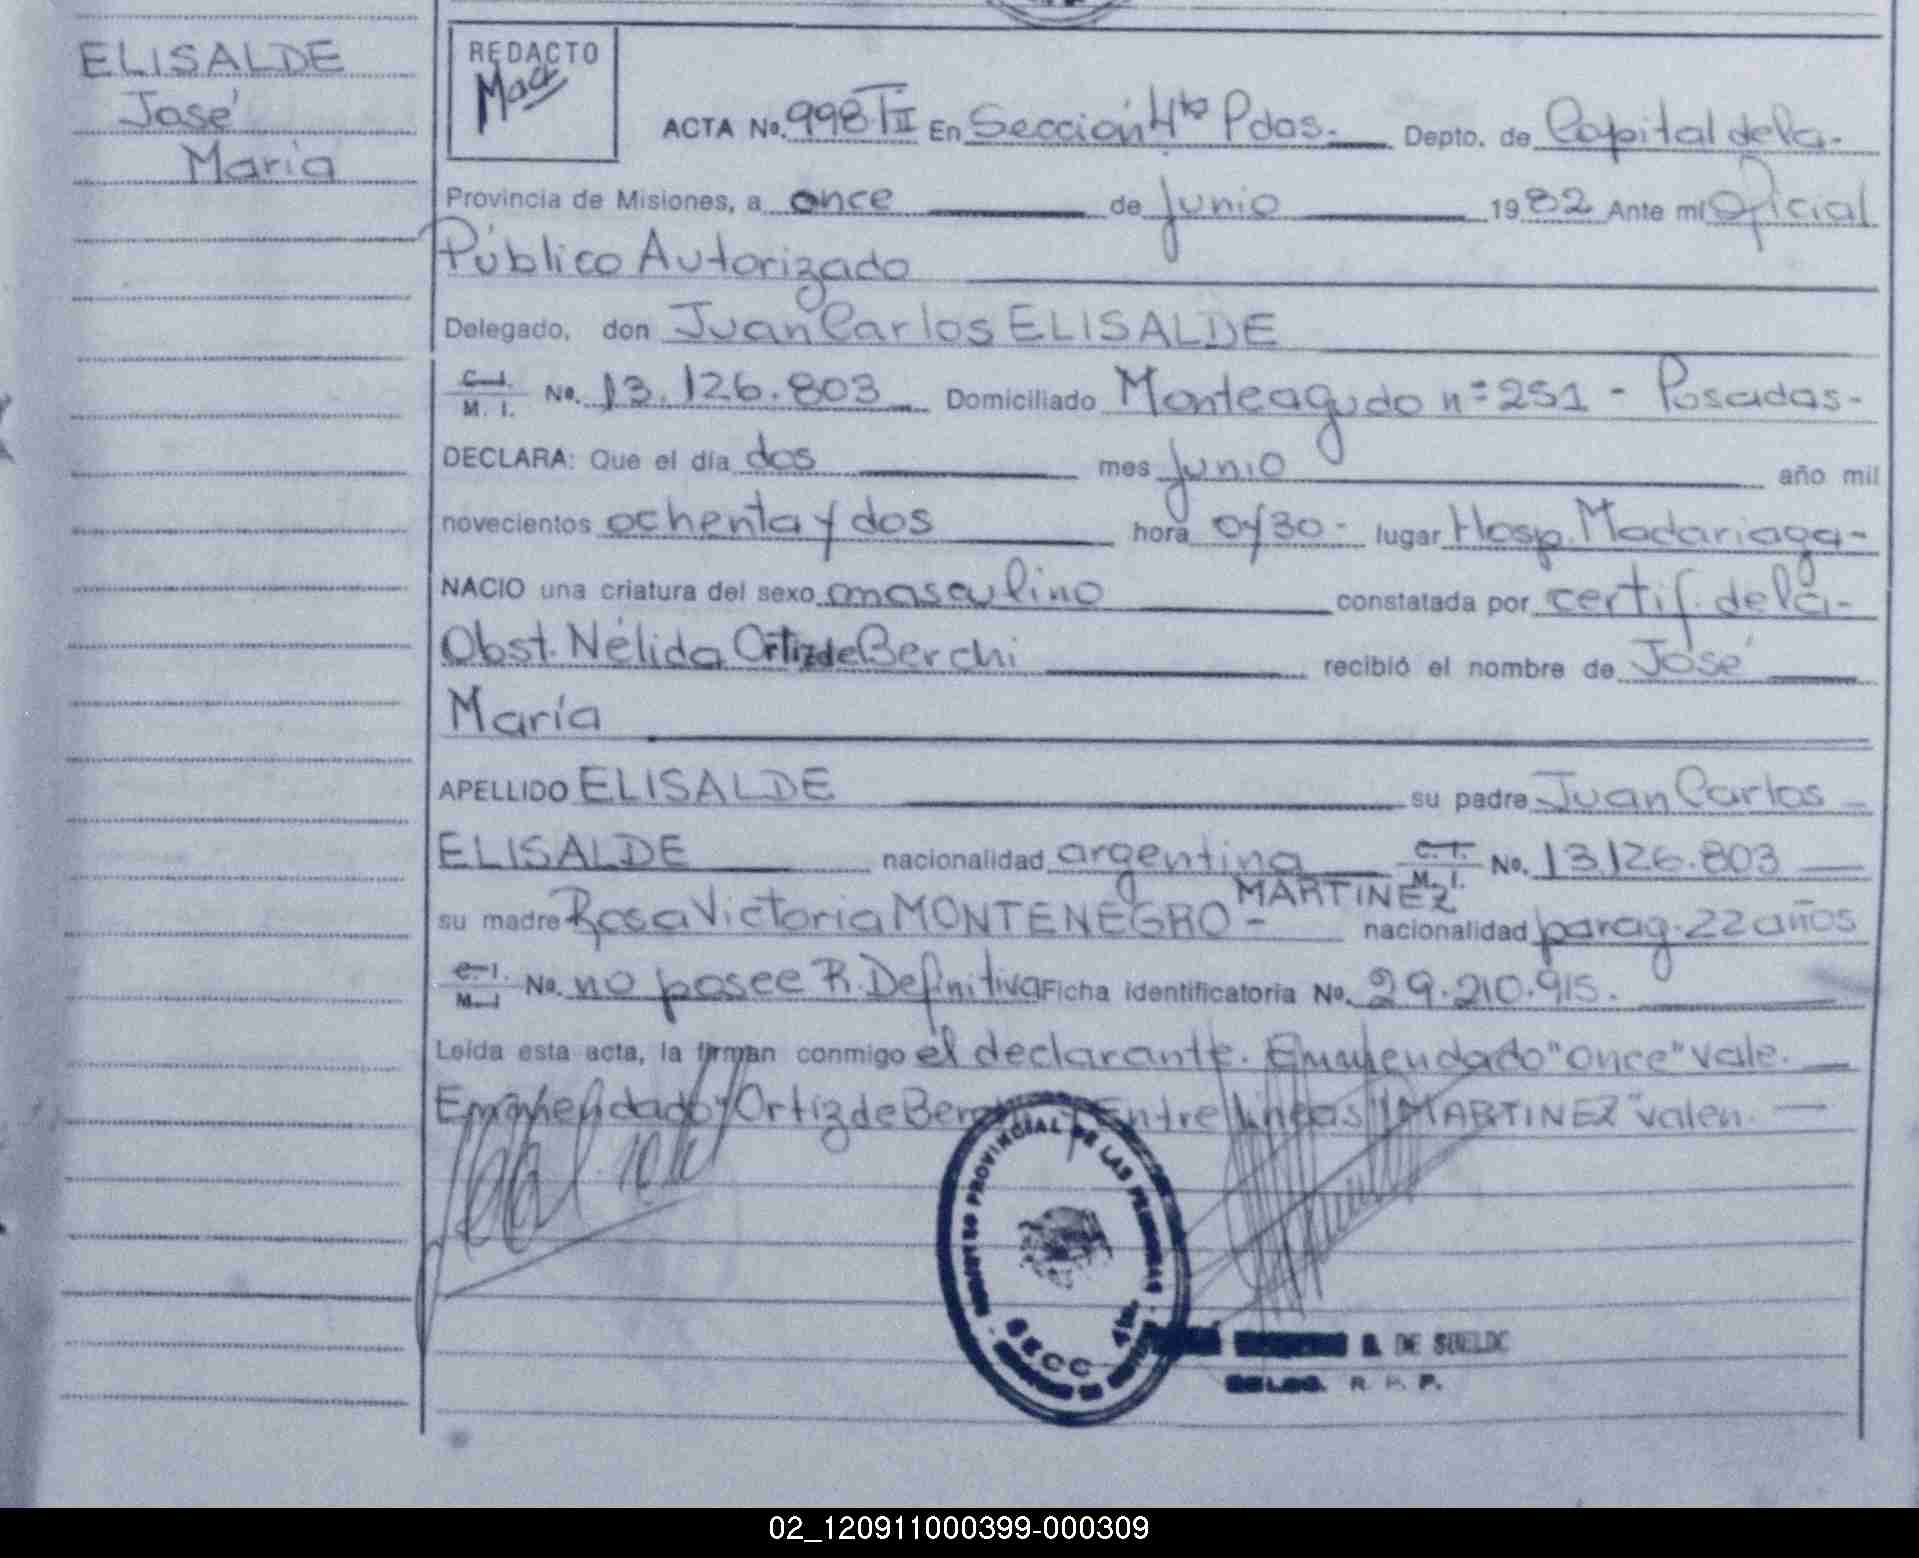 ELISALDE
José
María
REDACTO
ACTA No. 998 TII En Sección 4ta Pdas. Depto. de Capital de la
Provincia de Misiones, a once de junio 1982 Ante mí Oficial
Público Autorizado
Delegado, don Juan Carlos ELISALDE
C.I. M. I. No. 13.126.803 Domiciliado Monteagudo nº 251 - Posadas-
DECLARA: Que el día dos mes junio año mil
novecientos ochenta y dos hora 0y30- lugar Hosp. Madariaga-
NACIO una criatura del sexo masculino constatada por certif. de la-
Obst. Nélida Ortiz de Berchi recibió el nombre de José
María
APELLIDO ELISALDE su padre Juan Carlos
ELISALDE nacionalidad argentina C.I. M. I. No. 13.126.803
MARTINEZ
su madre Rosa Victoria MONTENEGRO - nacionalidad parag. 22 años
C.I. M. I. No. no posee R. Definitiva Ficha identificatoria No. 29.210.915.
Leída esta acta, la firman conmigo el declarante. Enmendado "once" vale.
Enmendado "Ortiz de Entre lineas "MARTINEZ" valen.
REGISTRO PROVINCIAL DE LAS PERSONAS
SECC 4ta.
DE SUELDO
DELEG. R. P. P.
02_120911000399-000309